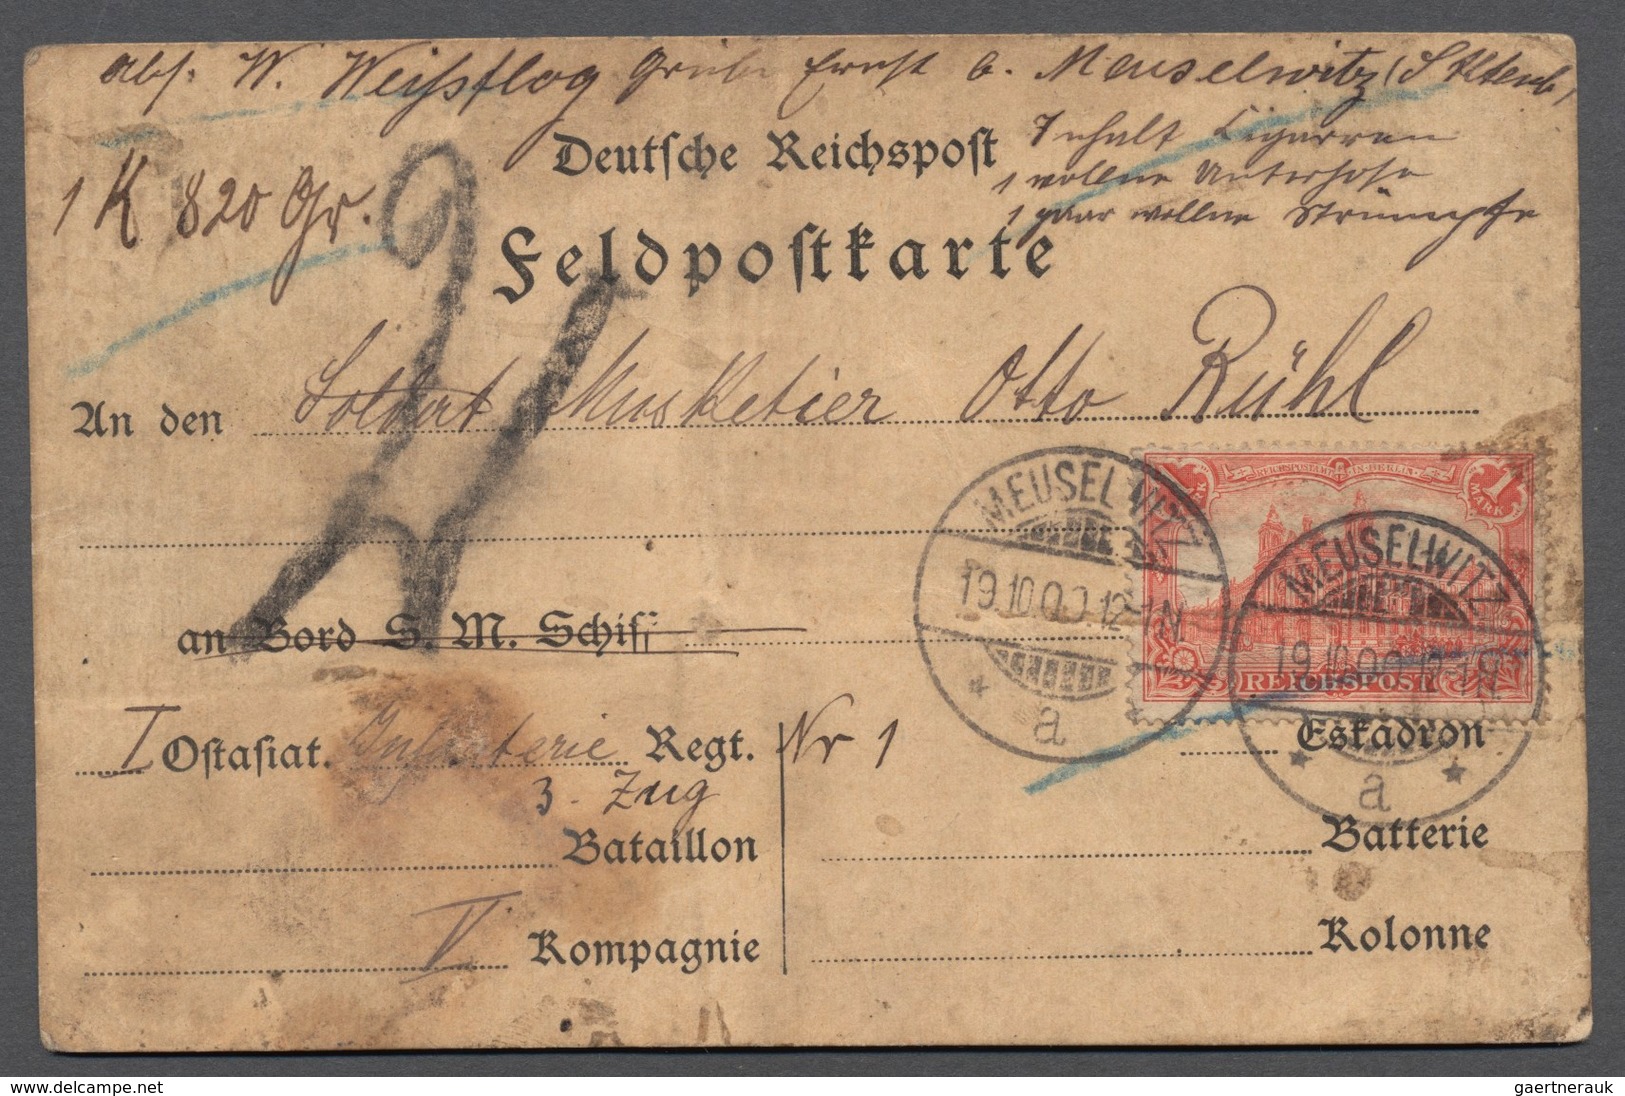 Abs. W. Weißflog Grube Ernst b. Meuselwitz (S Altenb.)
Deutsche Reichspost
Inhalt Cigarren
1 wollne Unterhose
1 paar wollne Strümpfe
1 K 820 Gr.
Feldpostkarte
An den Soldat Musketier Otto Rühl
REICHSPOSTAMT IN BERLIN
1 MARK
REICHSPOST
MEUSELWITZ
19.10.00.12-1N
a
MEUSELWITZ
19.10.00.12-1N
a
an Bord S. M. Schiff
I Ostasiat. Infanterie Regt. Nr 1
Eskadron
3. Zug
Bataillon
Batterie
V Kompagnie
Kolonne
www.delcampe.net
gaertnerauk